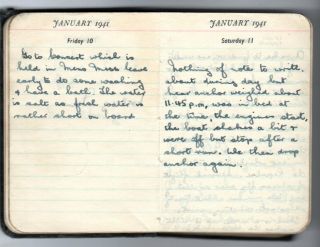 JANUARY 1941
Friday 10
Go to Concert which is
held in Mens Mess leave
early to do some washing
& have a bath. The water
is salt as fresh water is
rather short on board
JANUARY 1941
Saturday 11
Nothing of note to write
about during day but
hear anchor weighed about
11.45 p.m. was in bed at
the time, the engines start,
the boat shakes a bit &
were off but stop after a
short run. We then drop
anchor again.